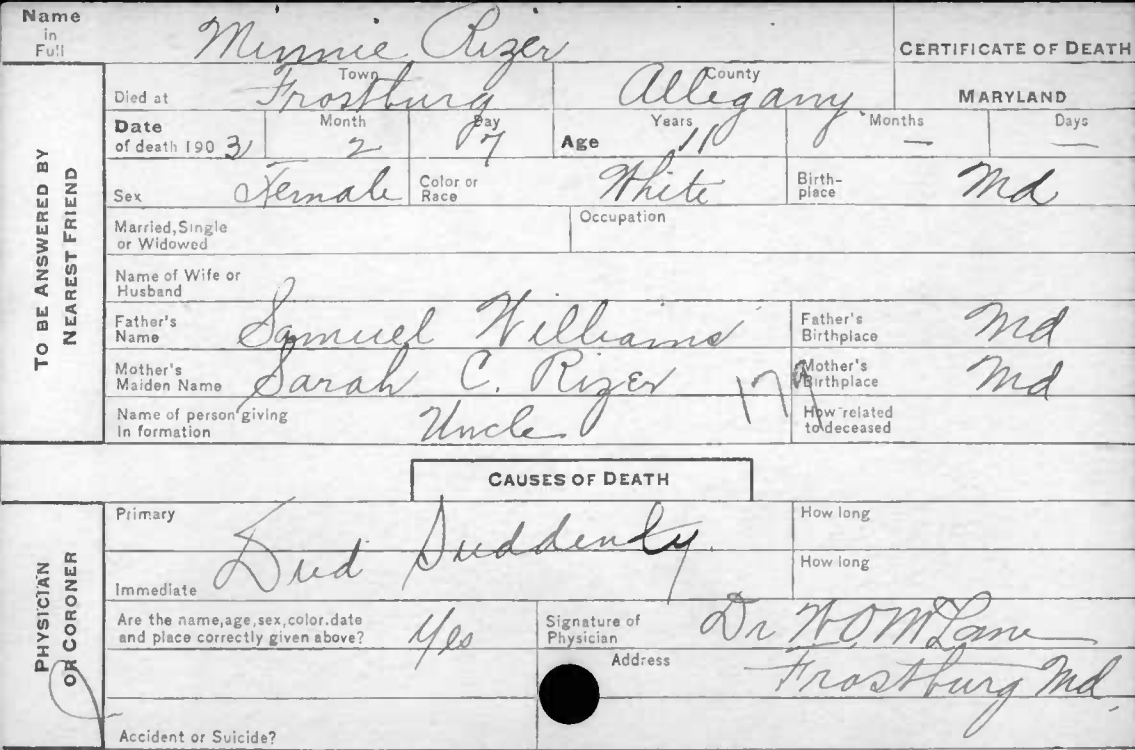 Name in Full Minnie Rizer
CERTIFICATE OF DEATH
TO BE ANSWERED BY NEAREST FRIEND
Died at Town Frostburg County Allegany MARYLAND
Date of death 1903 Month 2 Day 7 Age Years 11 Months — Days —
Sex Female Color or Race White Birth-place Md
Married, Single or Widowed Occupation
Name of Wife or Husband
Father's Name Samuel Williams Father's Birthplace Md
Mother's Maiden Name Sarah C. Rizer Mother's Birthplace Md
179
Name of person giving In formation Uncle How related to deceased
CAUSES OF DEATH
PHYSICIAN OR CORONER
Primary How long
Died Suddenly
Immediate How long
Are the name, age, sex, color. date and place correctly given above? Yes Signature of Physician Dr W.O. McLane
Address Frostburg Md.
Accident or Suicide?